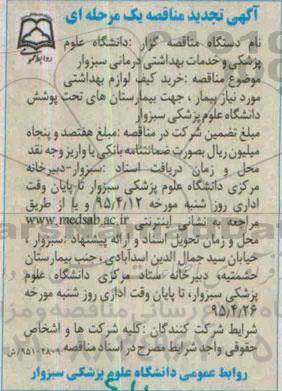 آگهی تجدید مناقصه یک مرحله ای
نام دستگاه مناقصه گزار :دانشگاه علوم
پزشکی و خدمات بهداشتی درمانی سبزوار
موضوع مناقصه :خرید کیف لوازم بهداشتی
مورد نیاز بیمار ، جهت بیمارستان های تحت پوشش
دانشگاه علوم پزشکی سبزوار
مبلغ تضمین شرکت در مناقصه :مبلغ هفتصد و پنجاه
میلیون ریال بصورت ضمانتنامه بانکی یا واریز وجه نقد
محل و زمان دریافت اسناد :سبزوار-دبیرخانه
مرکزی دانشگاه علوم پزشکی سبزوار تا پایان وقت
اداری روز شنبه مورخه ۹۵/۴/۱۲ و یا از طریق
مراجعه به نشانی اینترنتی www.medsab.ac.ir
محل و زمان تحویل اسناد و ارائه پیشنهاد :سبزوار ،
خیابان سید جمال الدین اسدآبادی ، جنب بیمارستان
حشمتیه، دبیرخانه ستاد مرکزی دانشگاه علوم
پزشکی سبزوار، تا پایان وقت اداری روز شنبه مورخه
۹۵/۴/۲۶
شرایط شرکت کنندگان :کلیه شرکت ها و اشخاص
حقوقی واجد شرایط مصرح در اسناد مناقصه ۹۵۱۰۲۸۰۹/ش
روابط عمومی دانشگاه علوم پزشکی سبزوار